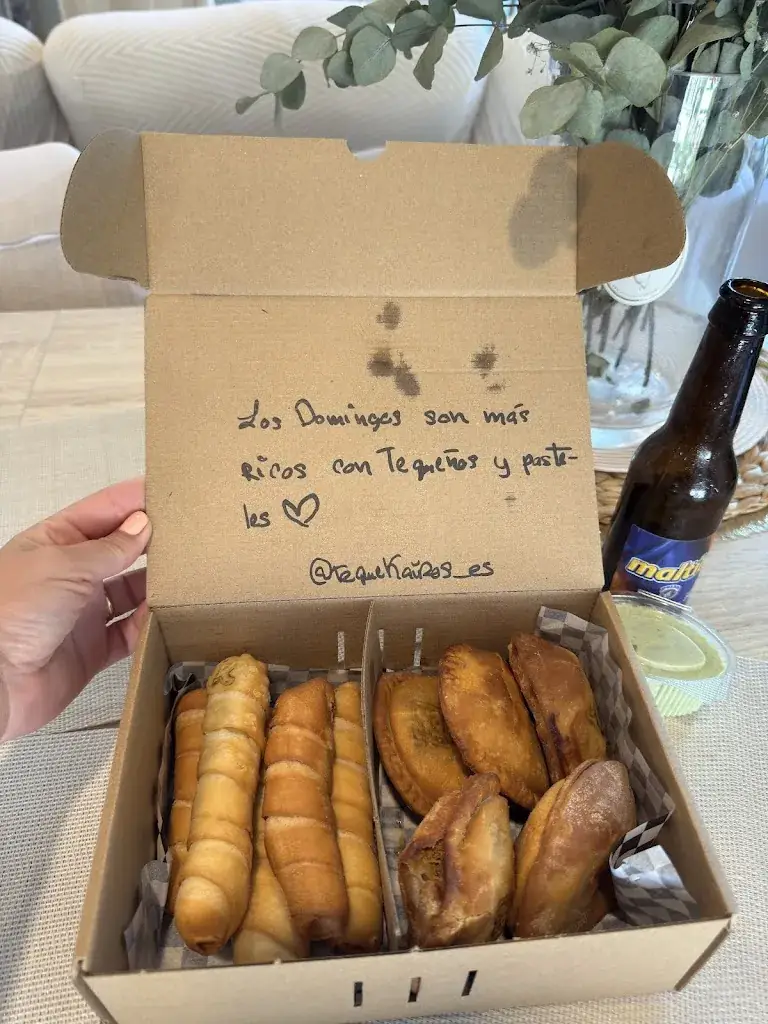 Los Domingos son más
Ricos con Tequeños y paste-
les ♡
@tequeKaires_es
malti